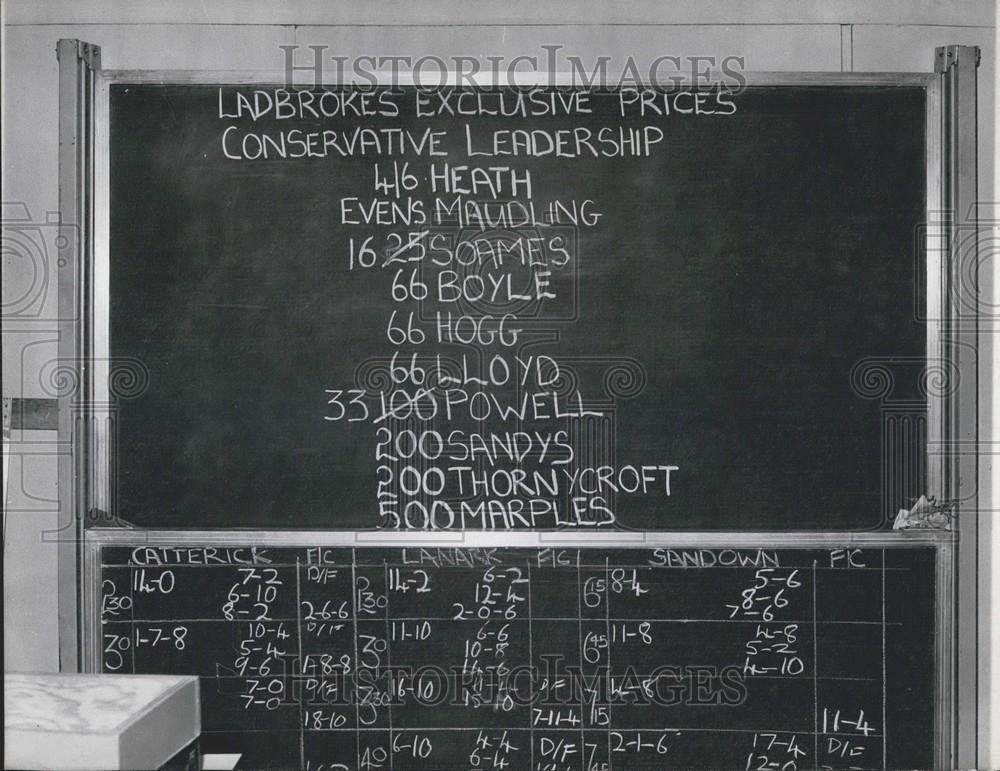 HISTORICIMAGES
LADBROKES EXCLUSIVE PRICES
CONSERVATIVE LEADERSHIP
4/6 HEATH
EVENS MAUDLING
16 25 SOAMES
66 BOYLE
66 HOGG
66 LLOYD
33 100 POWELL
200 SANDYS
200 THORNYCROFT
500 MARPLES
CATTERICK F/C LANARK F/C SANDOWN F/C
2 30 14-0 7-2 D/F 2 30 14-2 6-2 6 15 8-4 5-6
6-10 12-4 8-6
8-2 2-6-6 2-0-6 7-6
3 0 1-7-8 10-4 D/F 3 0 11-10 6-6 6 45 11-8 4-8
5-4 10-8 5-2
9-6 1-8-8 14-6 4-10
7-0 D/F 3 30 16-10 D/F 7 15 4-8
7-0 15-10
18-10 7-11-4 11-4
HISTORICIMAGES
4 0 6-10 4-4 D/F 7 45 2-1-6 17-4 D/F
6-4 12-0